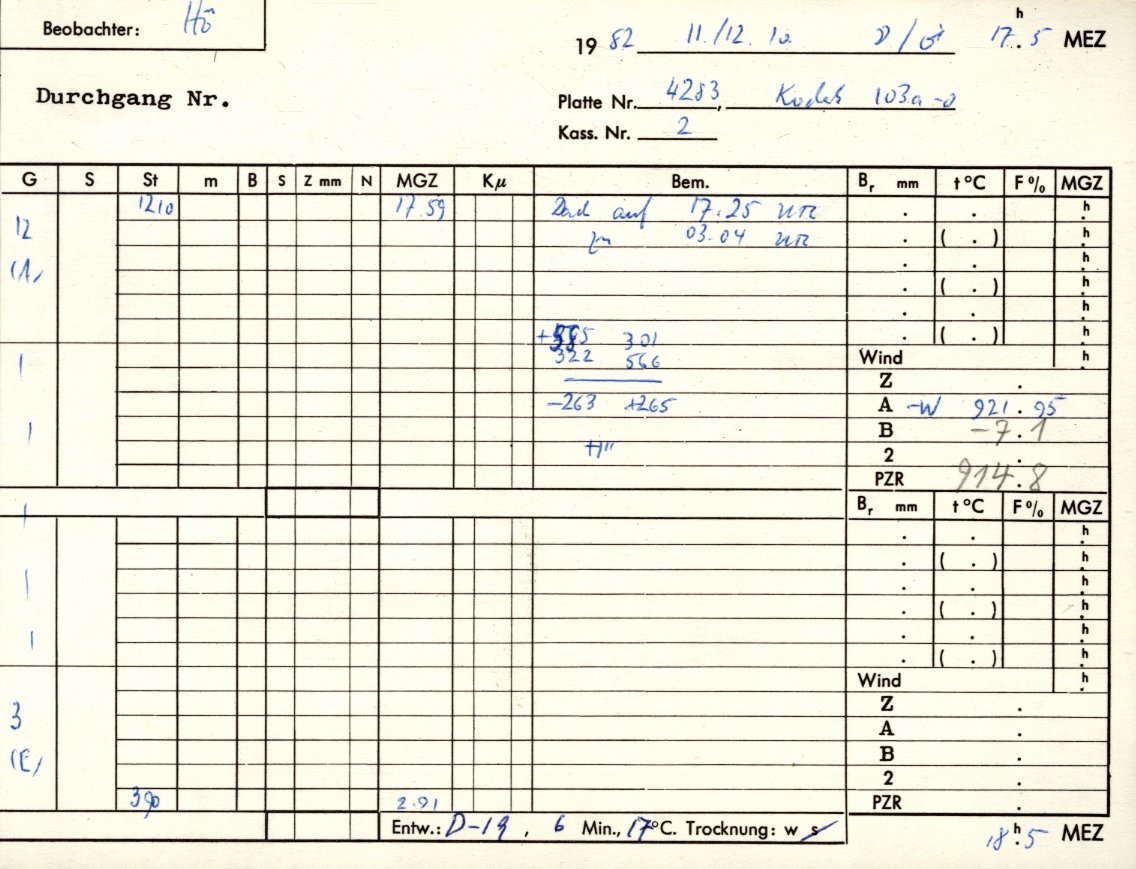 Beobachter: Hö
19 82 11./12. 10 17.ʰ5 MEZ
Durchgang Nr.
Platte Nr. 4283, Kodak 103a-o
Kass. Nr. 2
G S St m B S Z mm N MGZ Kμ Bem. Bᵣ mm t °C F % MGZ
1210 17.59 Dach auf 17.25
12 zu 03.04
(A)
301
1 322 566
Wind
Z
-263 +265 A -W 921.95
1 B -7.1
2
PZR 914.8
1 Bᵣ mm t °C F % MGZ
1
1
Wind
3 Z
A
(E) B
2
390 2.91 PZR
Entw.: D-19, 6 Min., 17°C. Trocknung: w s
18.ʰ5 MEZ